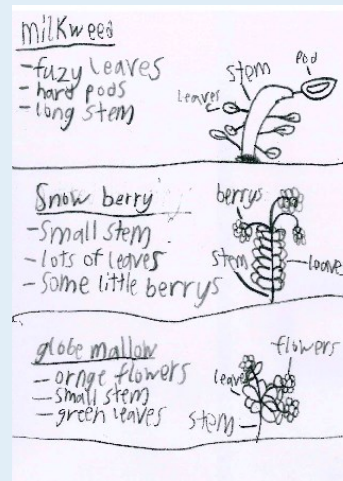 milkweed
-fuzy leaves
-hard pods
-long stem
stem
pod
leaves
Snow berry
-Small stem
-lots of leaves
-Some little berrys
berrys
stem
leave
globe mallow
-ornge flowers
-small stem
-green leaves
flowers
leave
stem